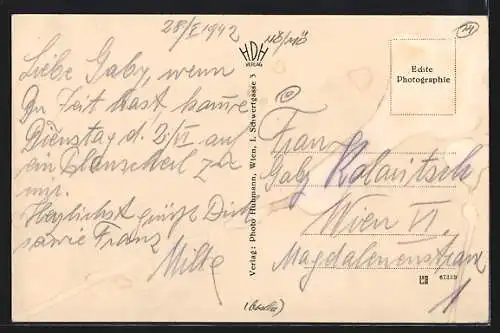 28/V 1942
NÖ/MÖ
HDH
VERLAG
24
Echte
Photographie
Liebe Gaby, wenn
Du Zeit hast komme
Dienstag d. 2/VI auf
ein Plauscherl zu
mir.
Herzlichst grüßt Dich
sowie Franz
Verlag: Photo Hubmann, Wien, I. Schwertgasse 3
Frau
Gaby Kolavitsch
Wien VI.
Magdalenenstrasse